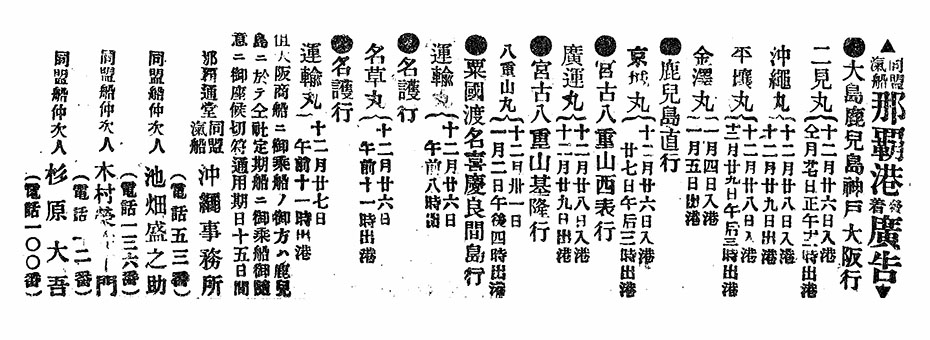 ▲同盟滊船那覇港發着廣告▼
●大島鹿兒島神戸大阪行
二見丸
十二月廿六日入港
仝月廿七日正午十二時出港
沖繩丸
十二月廿八日入港
十二月廿九日出港
平壤丸
十二月廿八日入港
十二月廿九日午后三時出港
金澤丸
一月四日入港
一月五日出港
●鹿兒島直行
京城丸
十二月廿六日入港
廿七日午后三時出港
●宮古八重山西表行
廣運丸
十二月廿八日入港
十二月廿九日出港
●宮古八重山基隆行
八重山丸
十二月卅一日
一月二日午後四時出港
●粟國渡名喜慶良間島行
運輸丸
十二月廿六日
午前八時出
●名護行
名草丸
十二月廿六日
午前十一時出港
●名護行
運輸丸
十二月廿七日
午前十一時出港
但大阪商船ニ御乘船ノ御方ハ鹿兒
島ニ於テ仝社定期船ニ御乘船御隨
意ニ御座候切符通用期日十五日間
那覇通堂
同盟滊船
沖繩事務所
(電話五三番)
同盟船仲次人 池畑盛之助
(電話一三六番)
同盟船仲次人 木村榮 門
(電話 二番)
同盟船仲次人 杉原大吾
(電話一〇〇番)